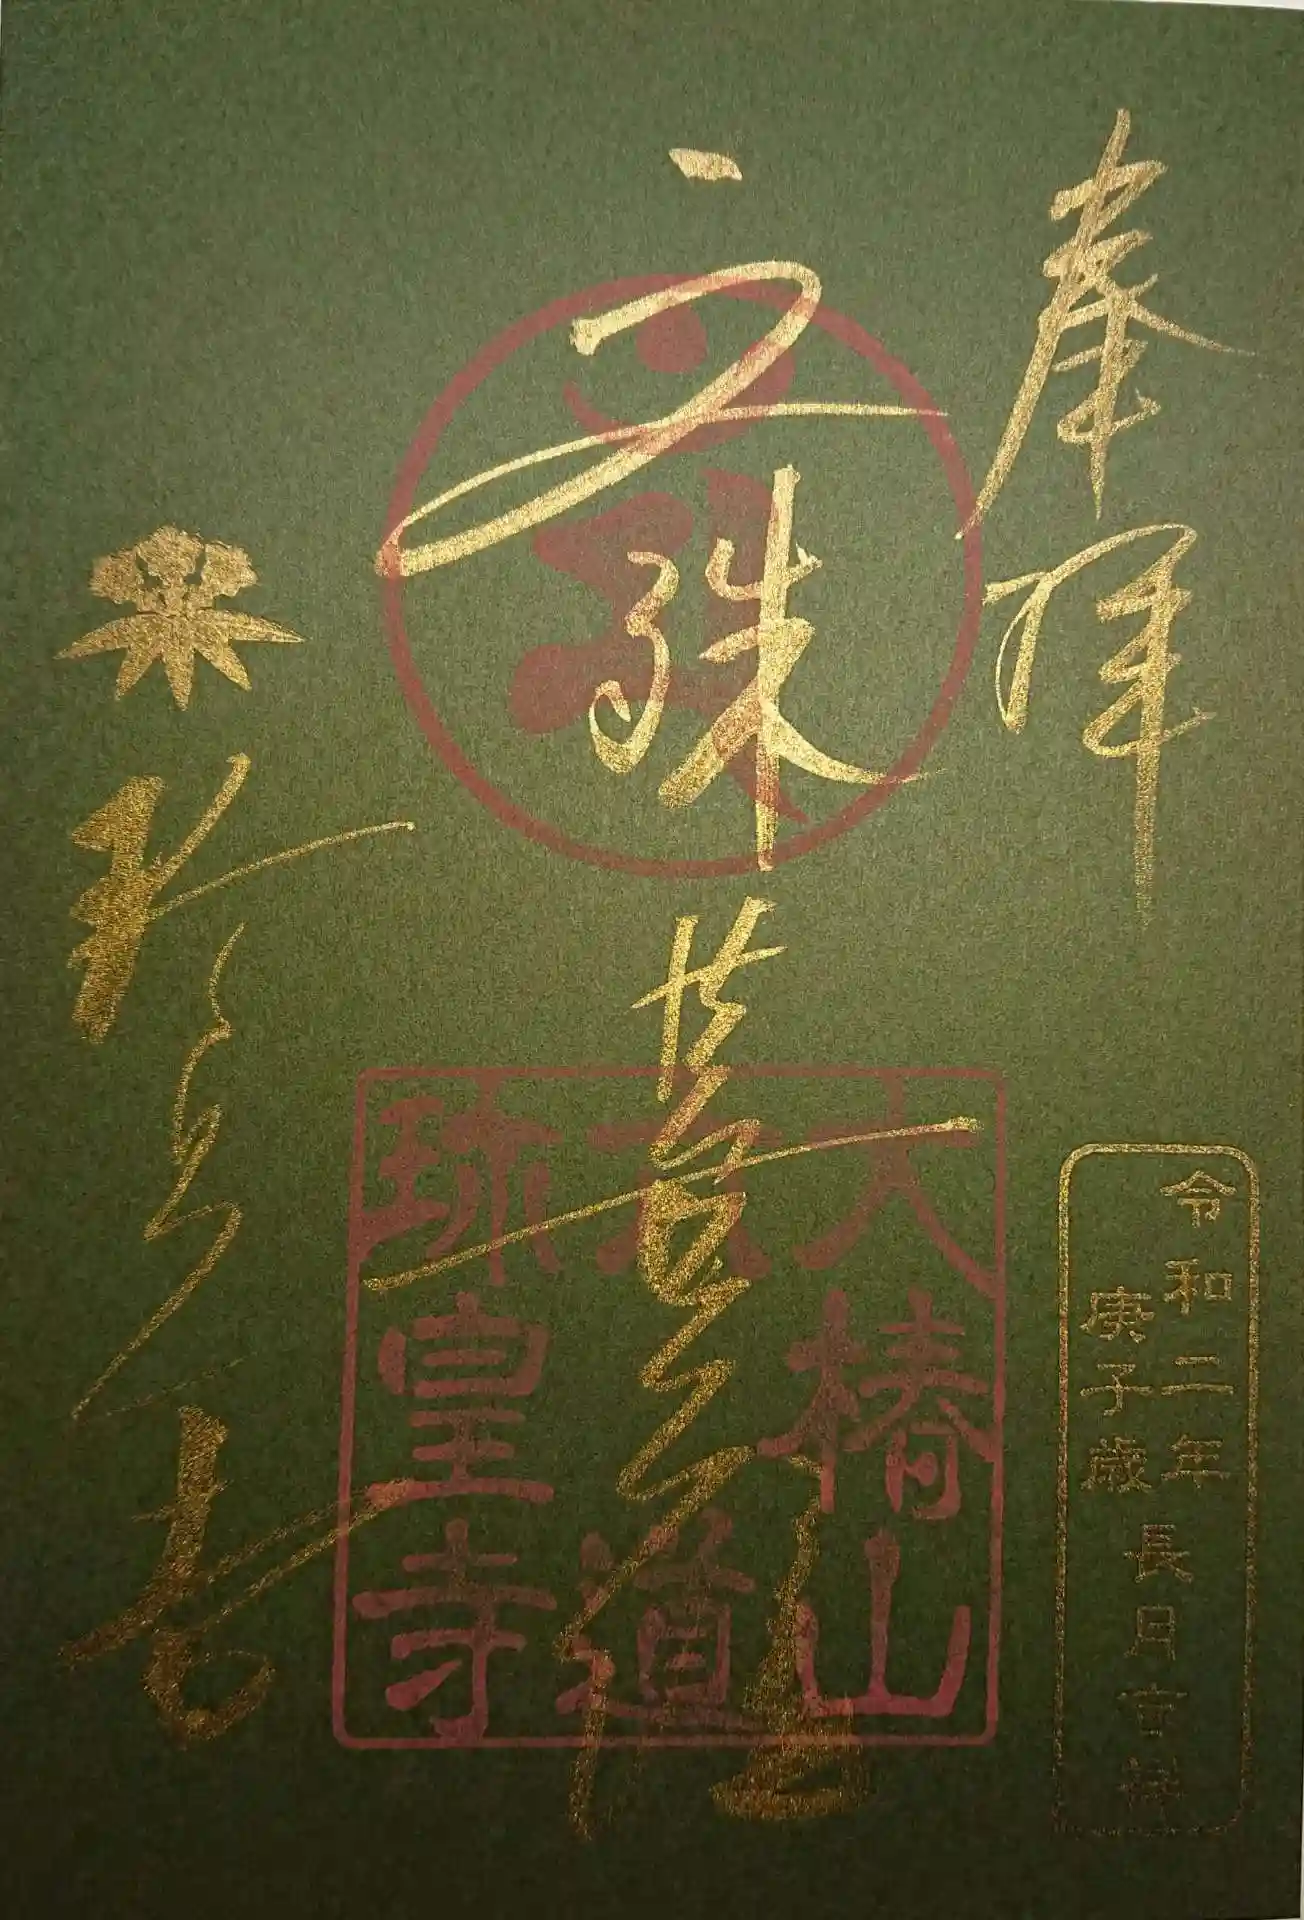 奉拝
令和二年
庚子歳
長月吉祥
文殊菩薩
大椿山
六道
珎皇寺
珎皇寺